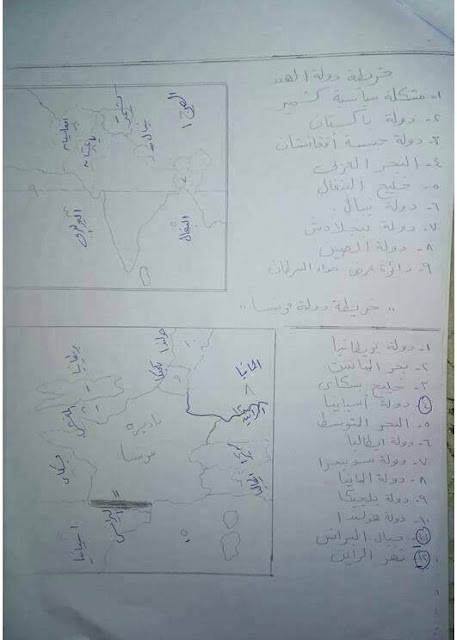 خريطة دولة الهند
١- مشكلة سياسية كشمير
٢- دولة باكستان
٣- دولة أفغانستان
٤- البحر العربي
٥- خليج البنغال
٦- دولة نيبال
٧- دولة بنجلادش
٨- دولة الصين
٩- دائرة عرض مدار السرطان
الصين
كشمير
نيبال
باكستان
البنغال
" خريطة دولة فرنسا "
١- دولة بريطانيا
٢- بحر المانش
٣- خليج بسكاي
٤- دولة أسبانيا
٥- البحر المتوسط
٦- دولة ايطاليا
٧- دولة سويسرا
٨- دولة المانيا
٩- دولة بلجيكا
١٠- دولة هولندا
١١- جبال البرانس
١٢- نهر الراين
بريطانيا
هولندا
بلجيكا
المانيا
باريس
فرنسا
بسكاي
البرانس
اسبانيا